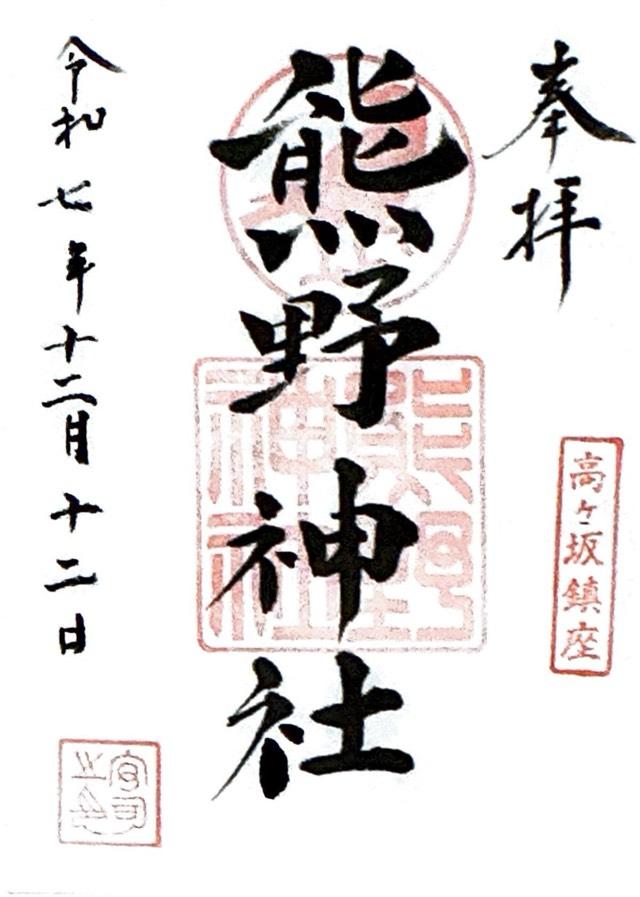 奉拝
高ヶ坂鎮座
熊野神社
熊野神社
令和七年十二月十二日
宮司之印